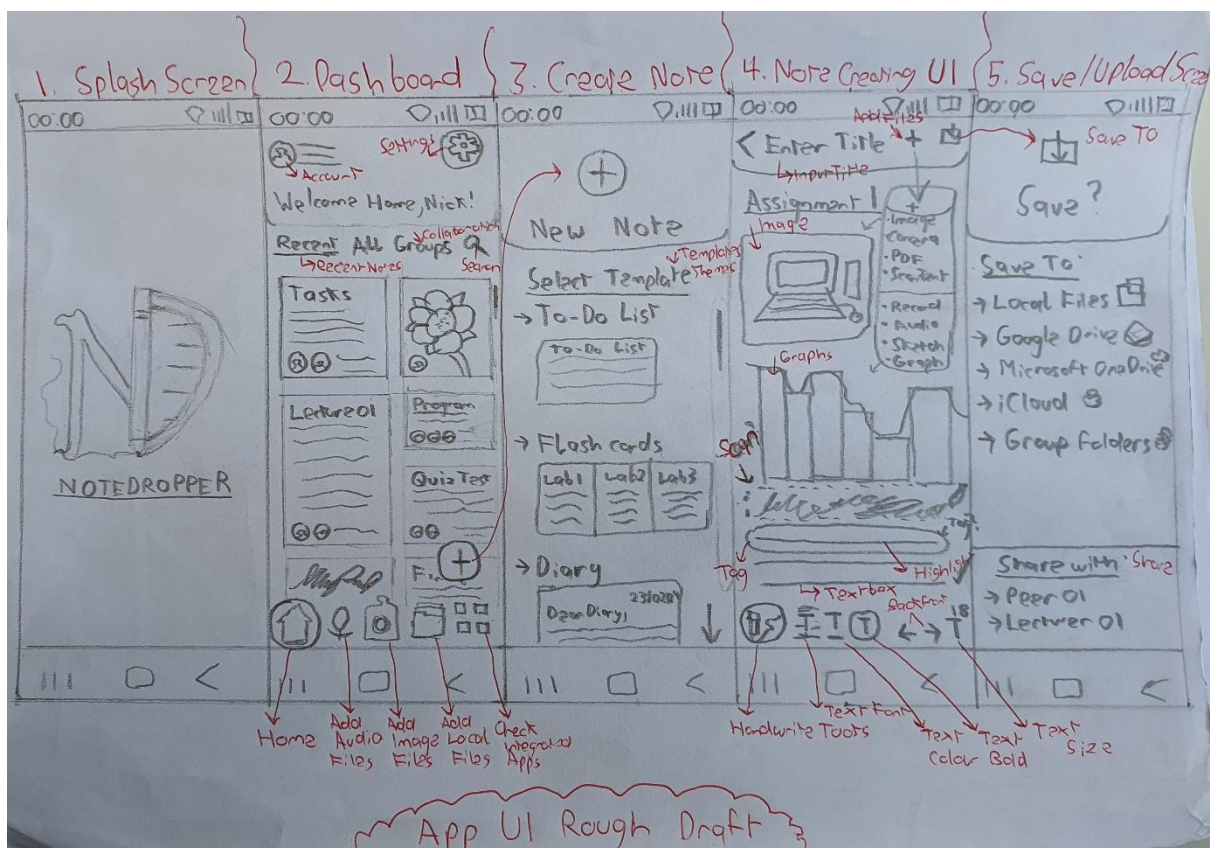 1. Splash Screen
00:00
NOTEDROPPER
2. Dashboard
00:00
Settings
Account
Welcome Home, Nick!
Collaboration
Recent All Groups
Recent Notes
Search
Tasks
Lecture 01
Program
Quiz Test
Home
Add Audio Files
Add Image Files
Add Local Files
Check Integrated Apps
3. Create Note
00:00
+
New Note
Templates
Themes
Select Template
→ To-Do List
To-Do List
→ Flash cards
Lab1 Lab2 Lab3
→ Diary
4. Note Creating UI
00:00
Add Files
< Enter Title +
Input Title
Assignment 1
Image
+
• Image
• PDF
• Record
• Audio
• Sketch
• Graph
Graphs
Scan
Tag
Highlight
Textbox
T T
18
T
Handwrite Tools
Text Font
Text Colour
Text Bold
Text Size
5. Save/Upload
00:00
Save To
Save?
Save To:
→ Local Files
→ Google Drive
→ Microsoft OneDrive
→ iCloud
→ Group Folders
Share with: Share
→ Peer 01
→ Lecturer 01
App UI Rough Draft